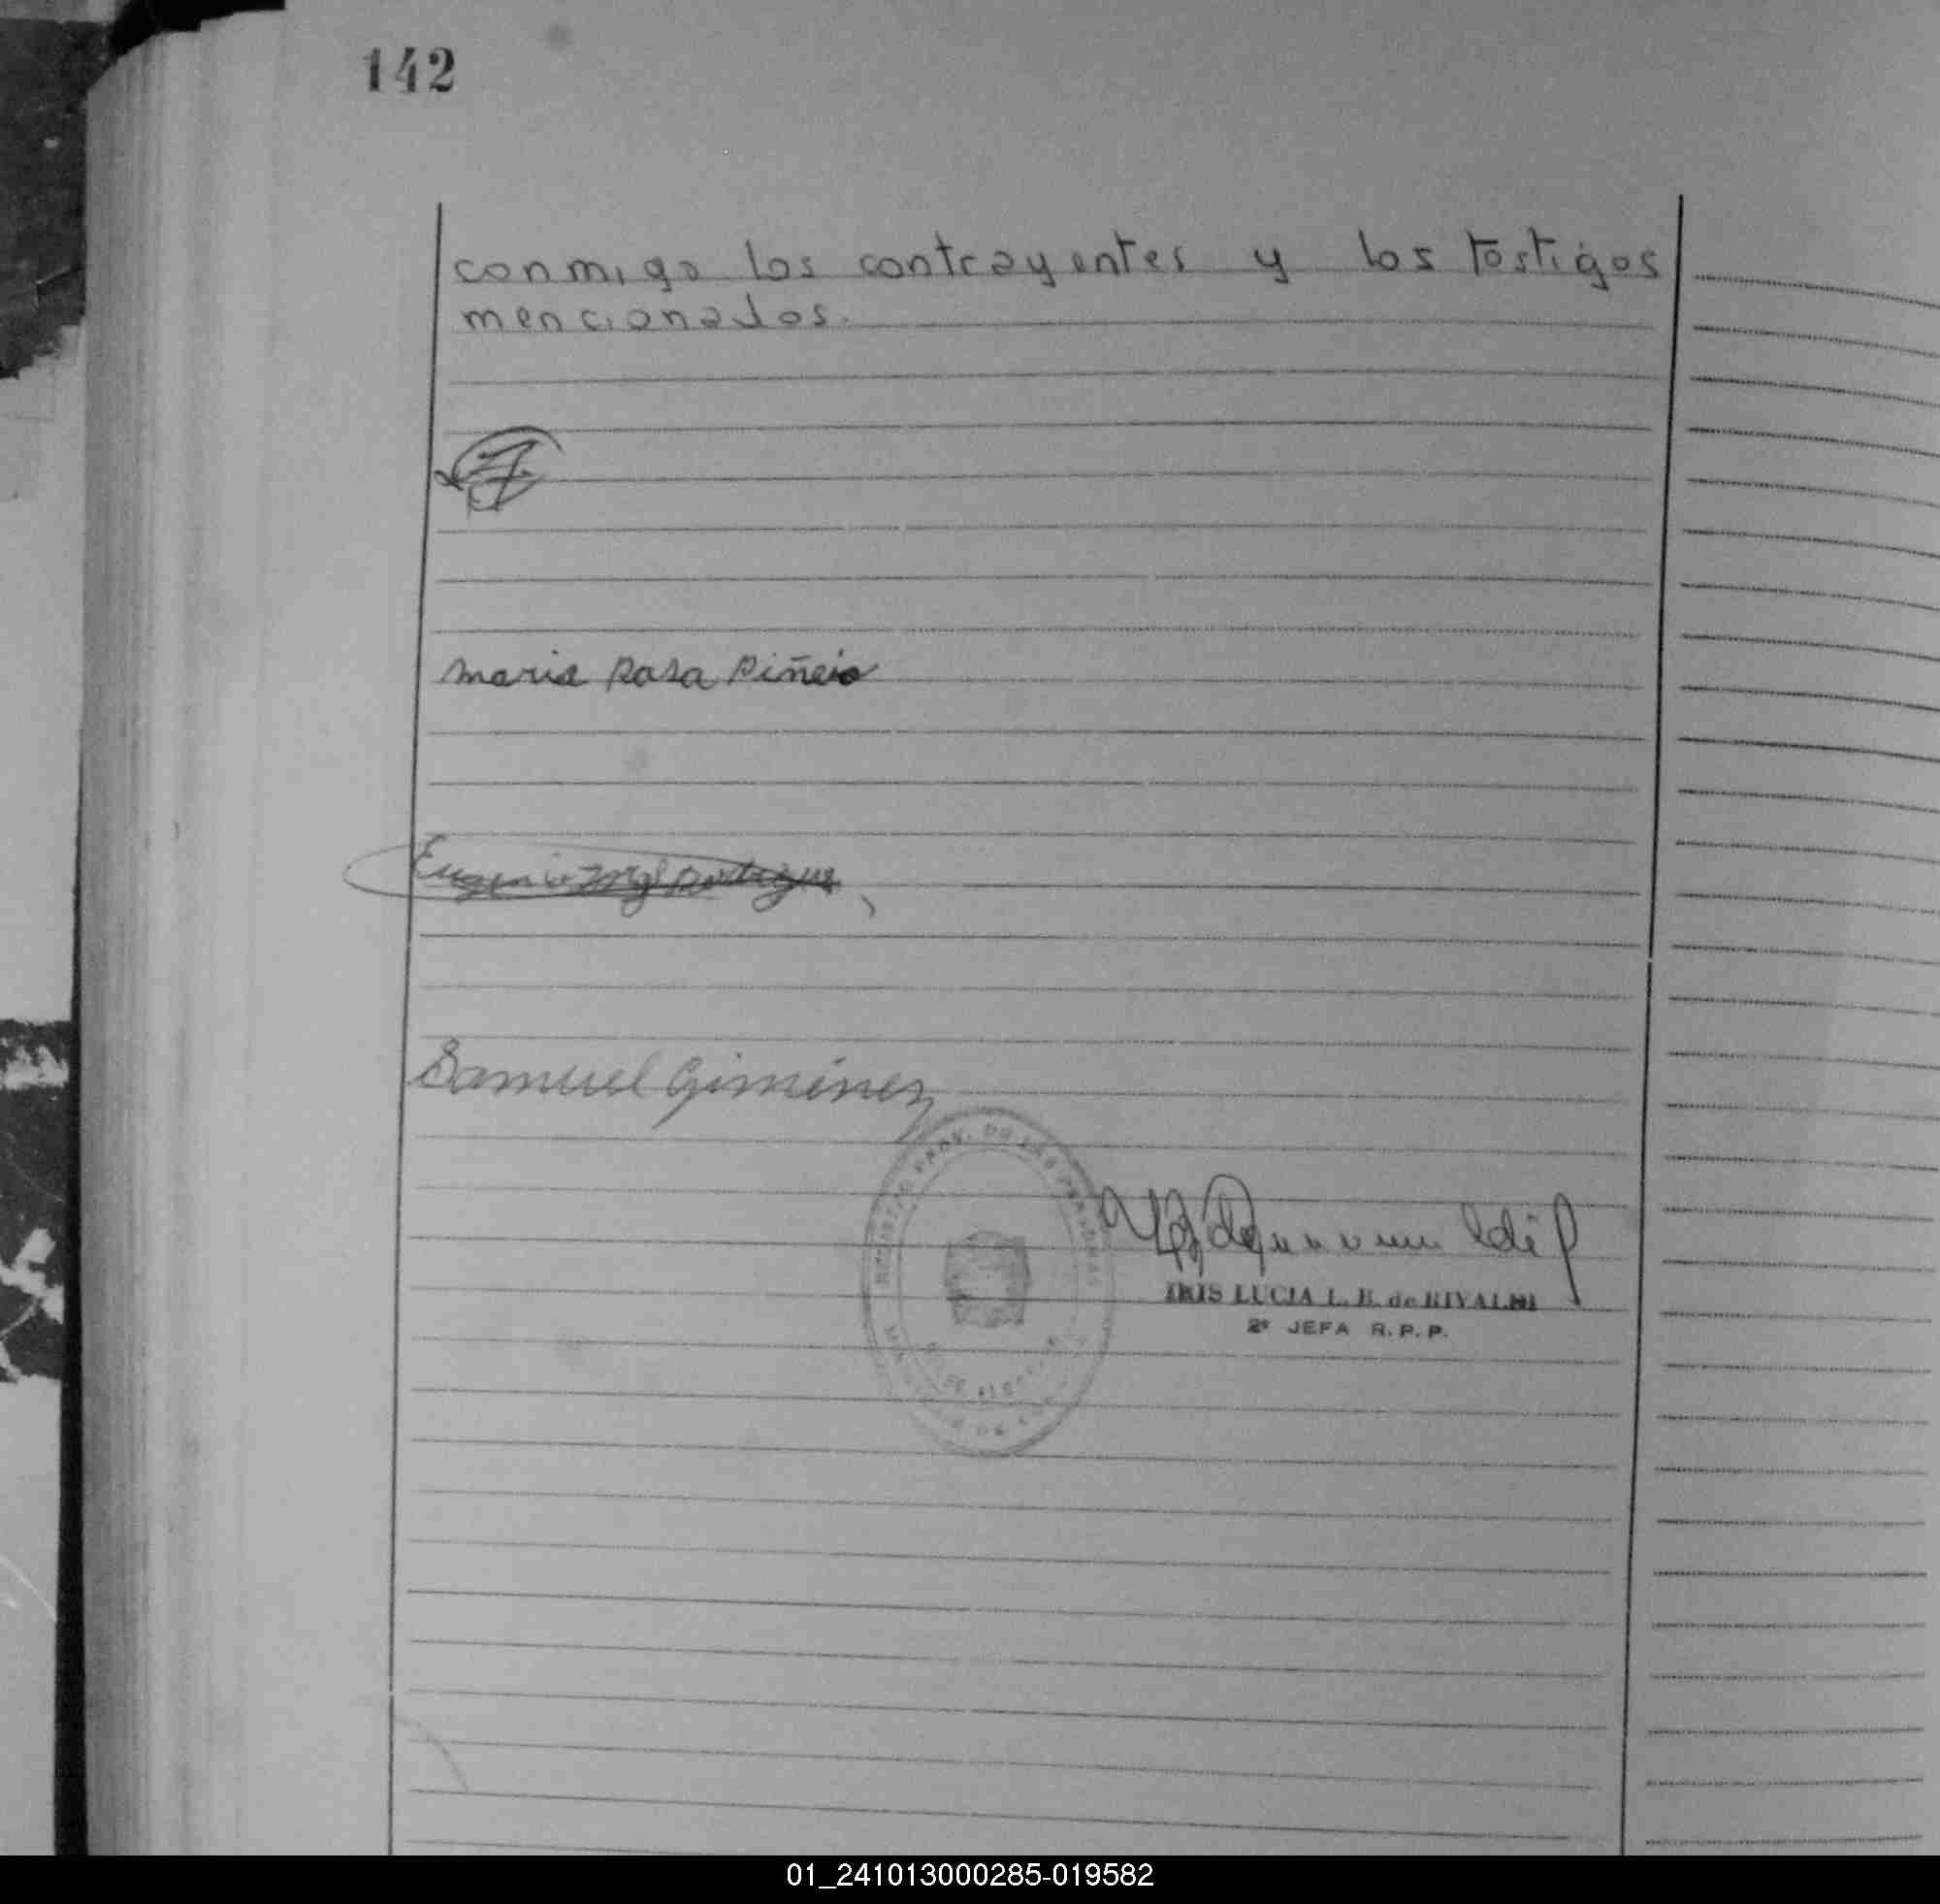 142
conmigo los contrayentes y los testigos
mencionados.
Maria Rosa Piñeiro
Samuel Gimenez
IRIS LUCIA L. B. de RIVALDI
2ª JEFA R. P. P.
01_241013000285-019582